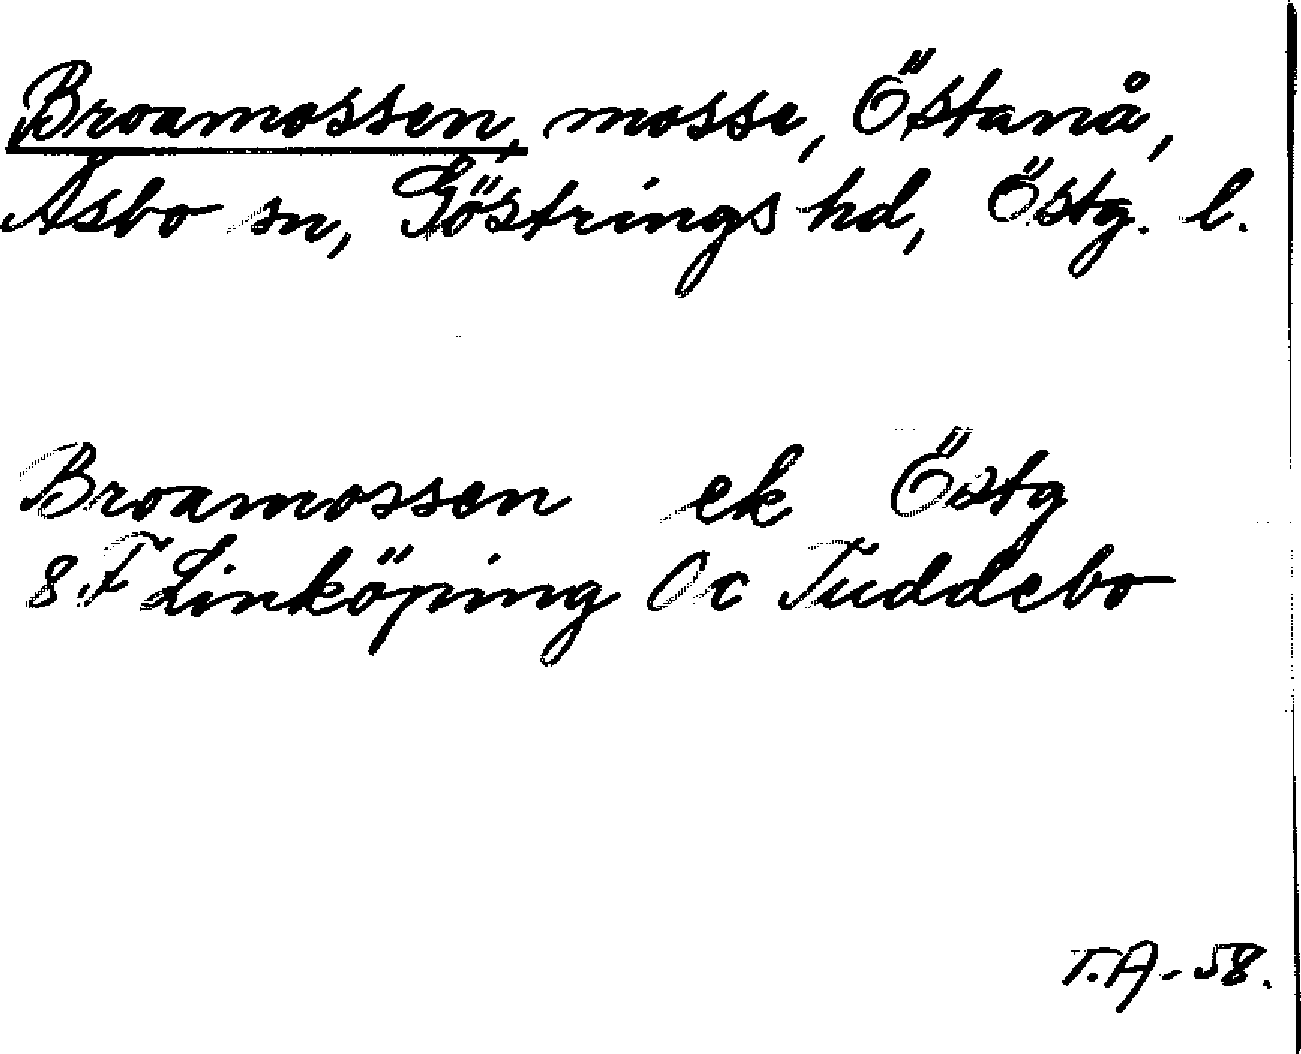 Broamossen, mosse, Östanå,
Asbo sn, Göstrings hd, Östg. l.
Broamossen ek Östg
8.F Linköping Oc Tuddebo
T.A-58.